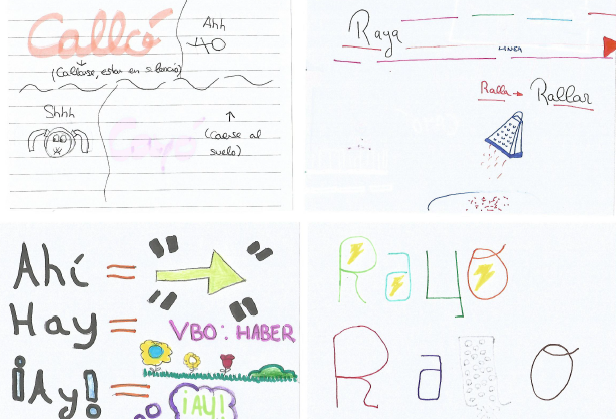 Calló
Ahh
(Callarse, estar en silencio)
Shhh
Cayó
(Caerse al suelo)
Raya
LINEA
Ralla → Rallar
Ahí =
Hay = VBO: HABER
¡Ay! = ¡AY!
Rayo
Ra o